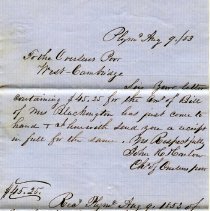 Plym° Aug. 9. /53
To the Overseers Poor
West-Cambridge
Sir Your letter
containing $45.25 for the Am° of Bill
of Mrs Blackington has just come to
hand & I herewith send you a receipt
in full for the same. Yrs Respectfully
John H. Harlow
Ch of Overseers poor
$45.25.
Rec'd Plym° Aug 9. 1853 of